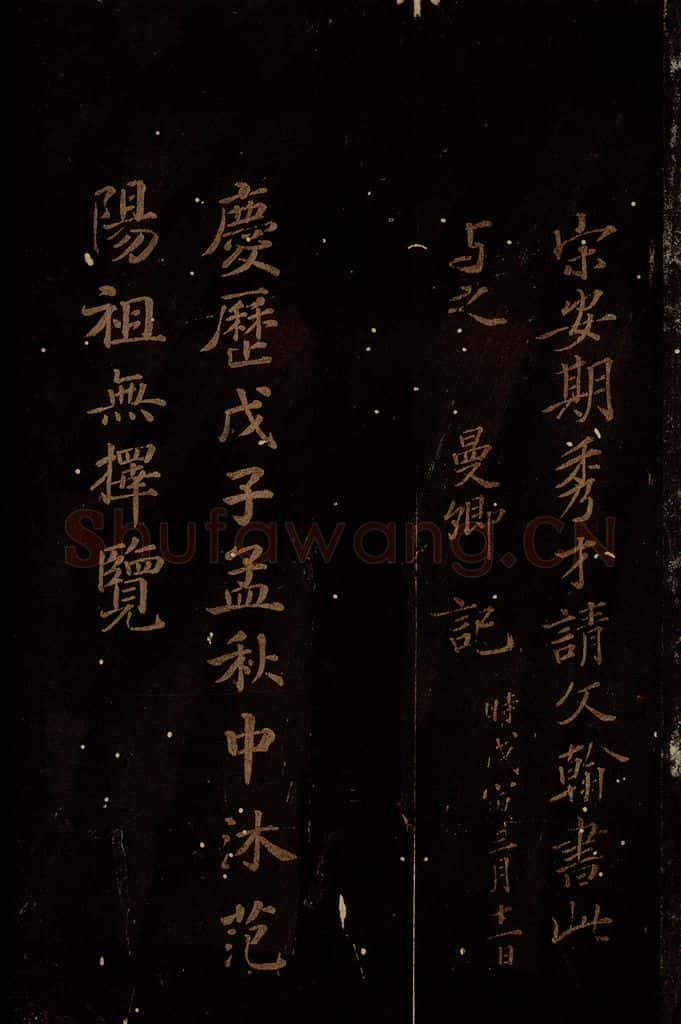 宋安期秀才請仌翰書此
与之 曼卿記
時戊寅三月十一日
慶歷戊子孟秋中沐范
陽祖無擇覽
Shufawang.CN